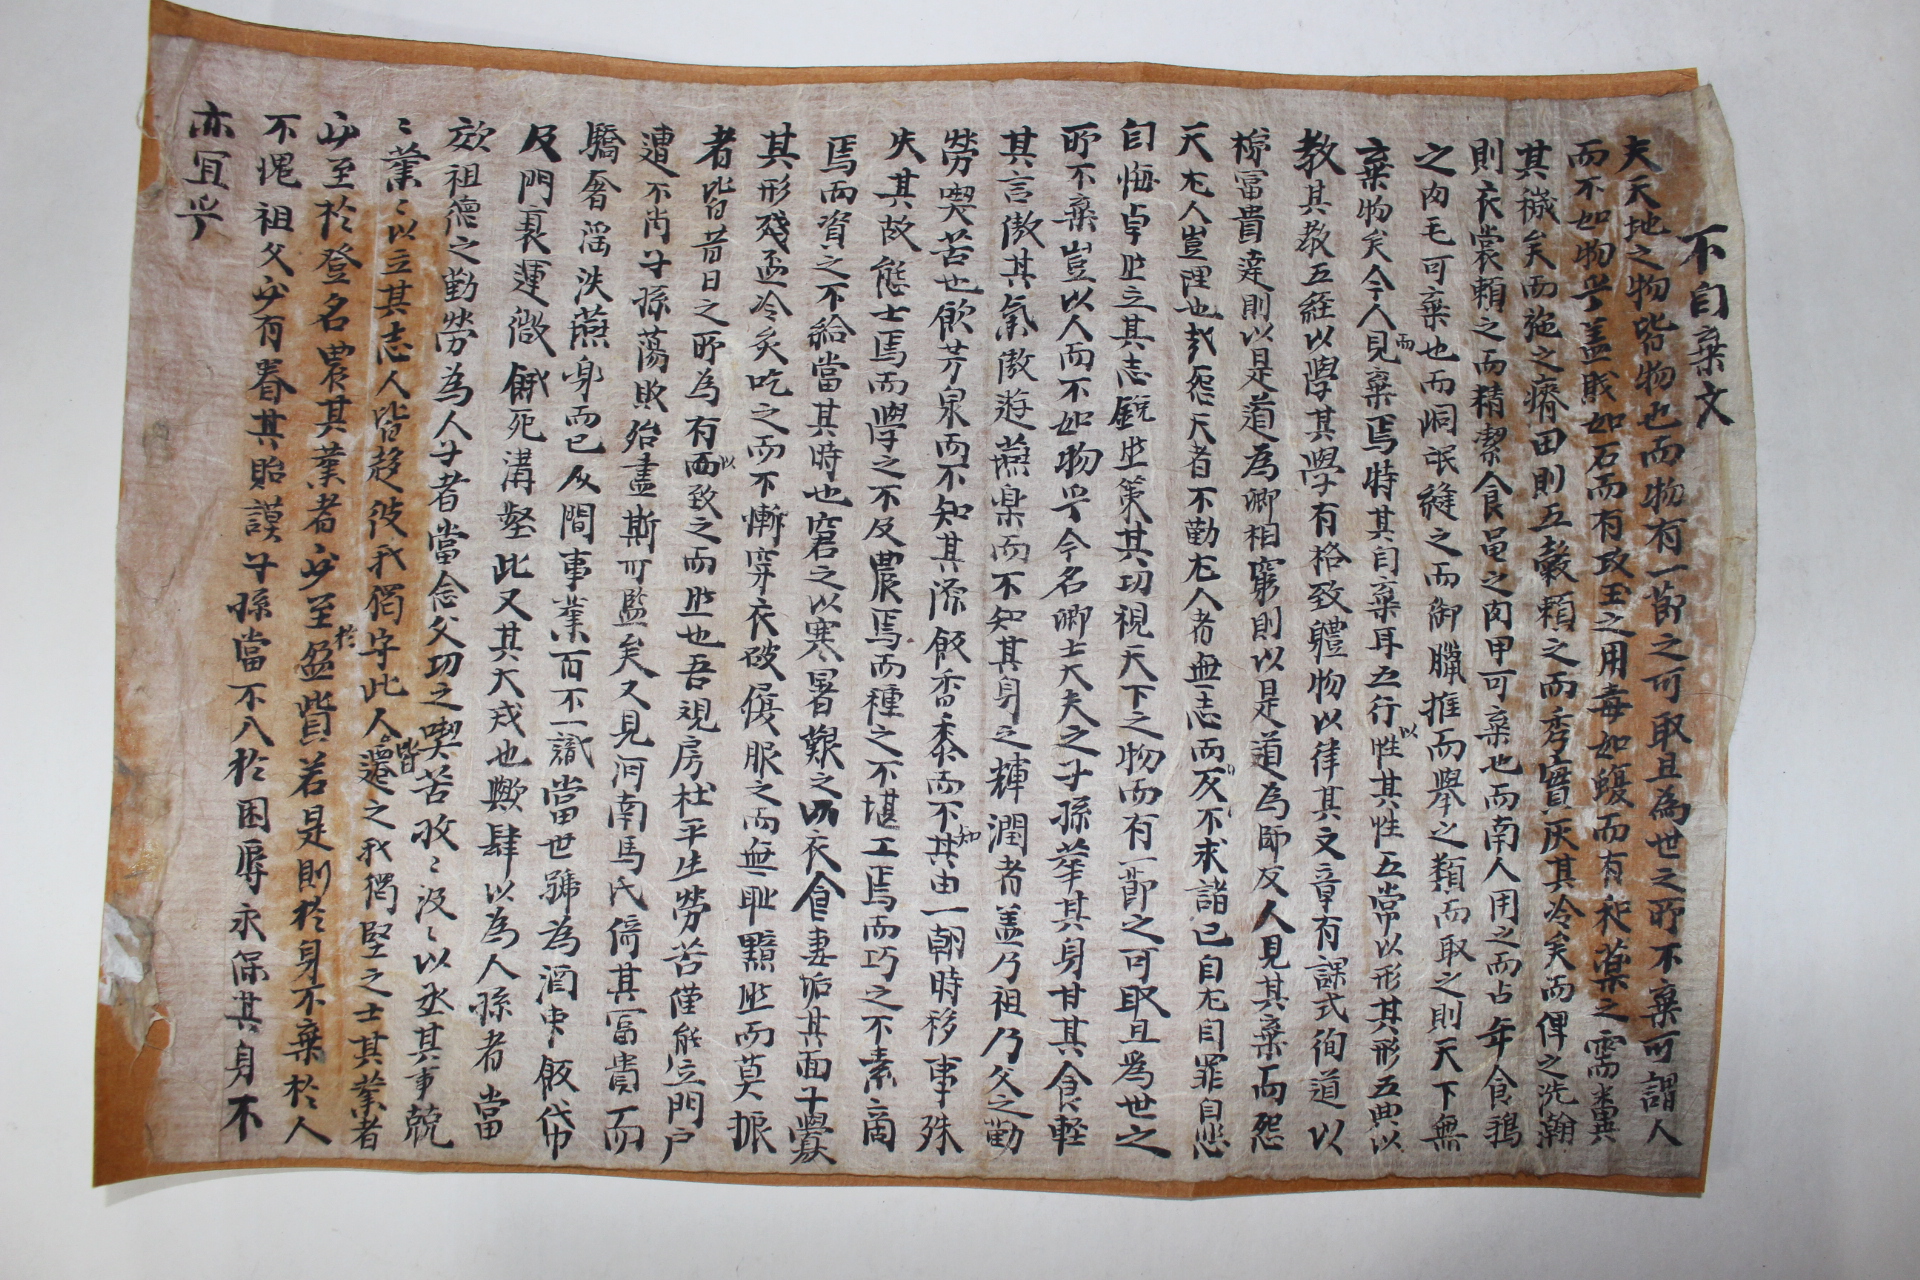 不自棄文
夫天地之物皆物也而物有一節之可取且為世之所不棄可謂人
而不如物乎盖賎如石而有攻玉之用毒如蝮而有和藥之需糞
其穢矣而施之瘠田則五穀賴之而秀實灰其冷矣而俾之洗瀚
則衣裳賴之而精潔食黾之肉甲可棄也而南人用之而占年食鵝
之肉毛可棄也而峒氓縫之而御臘推而舉之類而取之則天下無
棄物矣今人而見棄焉特其自棄耳五行以性其性五常以形其形五典以
教其教五経以學其學有格致體物以律其文章有課式徇道以
梯富貴達則以是道為卿相窮則以是道為師反人見其棄而怨
天尤人豈理也哉怨天者不勤尤人者無志而反不求諸己自尤自罪自悲
自悔卓止立其志銳止策其功視天下之物而有一節之可取且爲世之
所不棄豈以人而不如物乎今名卿士大夫之子孫華其身甘其食軽
其言傲其氣傲遊燕楽而不知其身之輝潤者盖乃祖乃父之勤
勞喫苦也飲芳泉而不知其源飯香黍而不知其由一朝時移事殊
失其故態士焉而學之不及農焉而種之不堪工焉而巧之不素商
焉而資之不給當其時也窘之以寒暑艱之以衣食妻垢其面子釁
其形殘盃冷炙吃之而不慚穿衣破履服之而無耻黯止而莫振
者皆昔日之所為有以而致之而止也吾視房杜平生勞苦僅能立門戶
遭不肖子孫蕩敗殆盡斯可監矣又見河南馬氏倚其富貴而
驕奢淫泆燕身而已反間事業百不一識當世號為酒東飯帒
及門衰運微餓死溝壑此又其大戒也歟肆以為人孫者當
效祖德之勤勞為人子者當念父功之喫苦孜〻汲〻以丞其事兢
〻業〻以立其志人皆趍彼我獨守此人皆遷之我獨堅之士其業者
必至於登名農其業者必至於盈貲若是則於身不棄於人
不愧祖父必有眷其貽謨子孫當不入於困辱永保其身不
亦宜乎